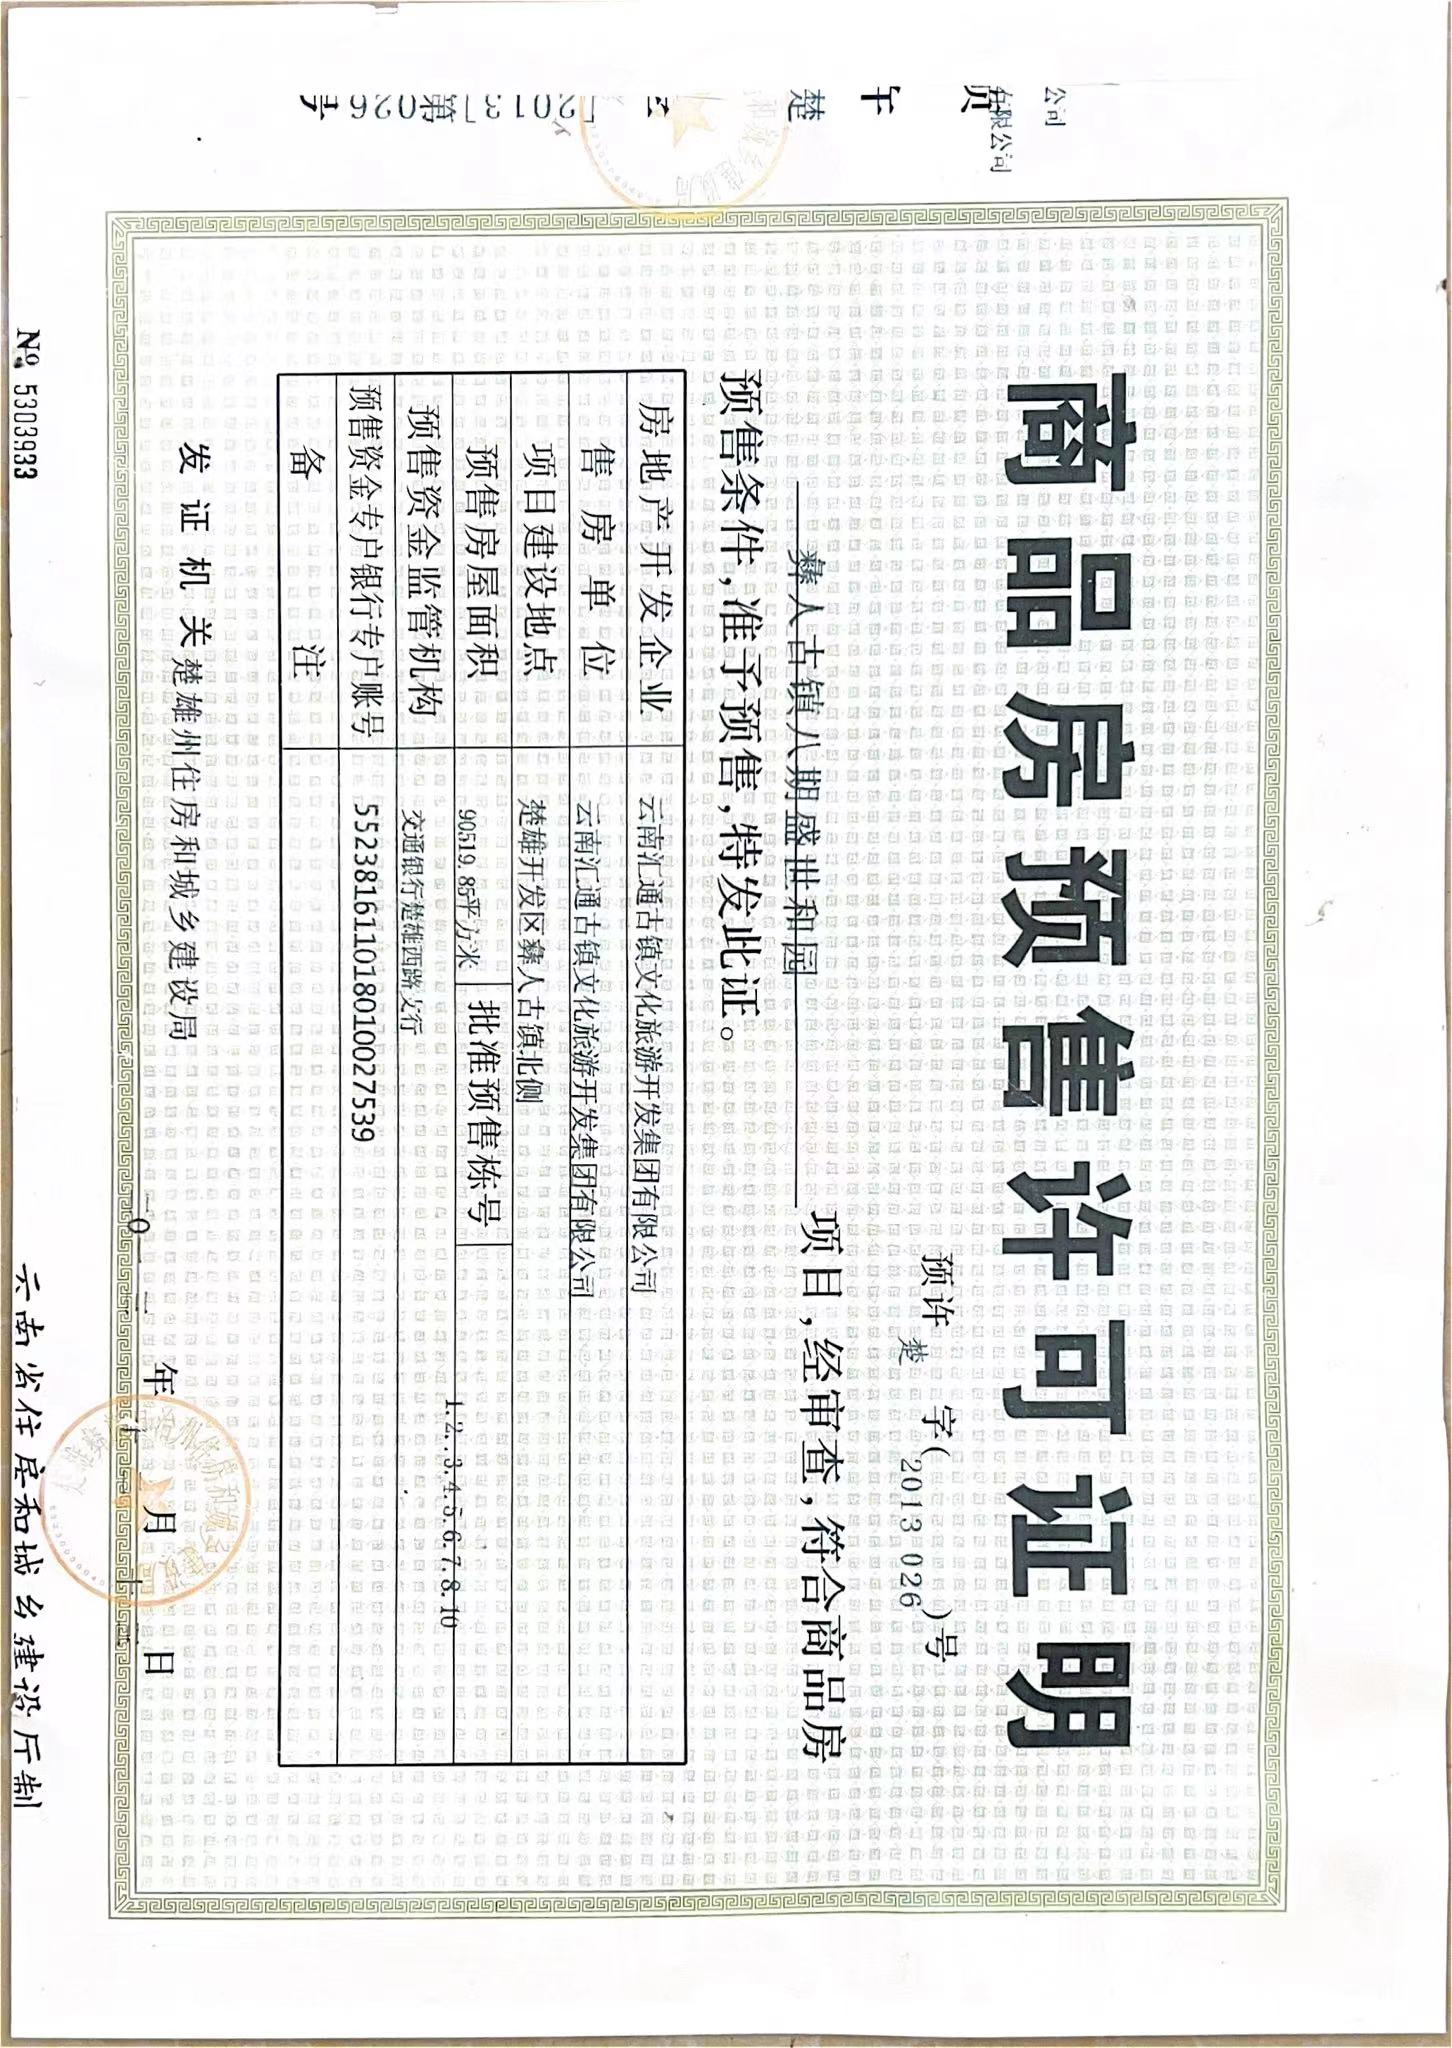 商品房预售许可证明
预许 楚 字(2013 026)号
彝人古镇八期盛世和园 项目,经审查,符合商品房
预售条件,准予预售,特发此证。
房地产开发企业 云南汇通古镇文化旅游开发集团有限公司
售房单位 云南汇通古镇文化旅游开发集团有限公司
项目建设地点 楚雄开发区彝人古镇北侧
预售房屋面积 90519.85平方米 批准预售栋号 1.2..3.4.5.6.7.8.10
预售资金监管机构 交通银行楚雄西路支行
预售资金专户银行专户账号 552381611018010027539
备注
发证机关 楚雄州住房和城乡建设局
年 月 日
№ 53039333
云南省住房和城乡建设厅制
公司
有限公司
楚
[2013]第026号